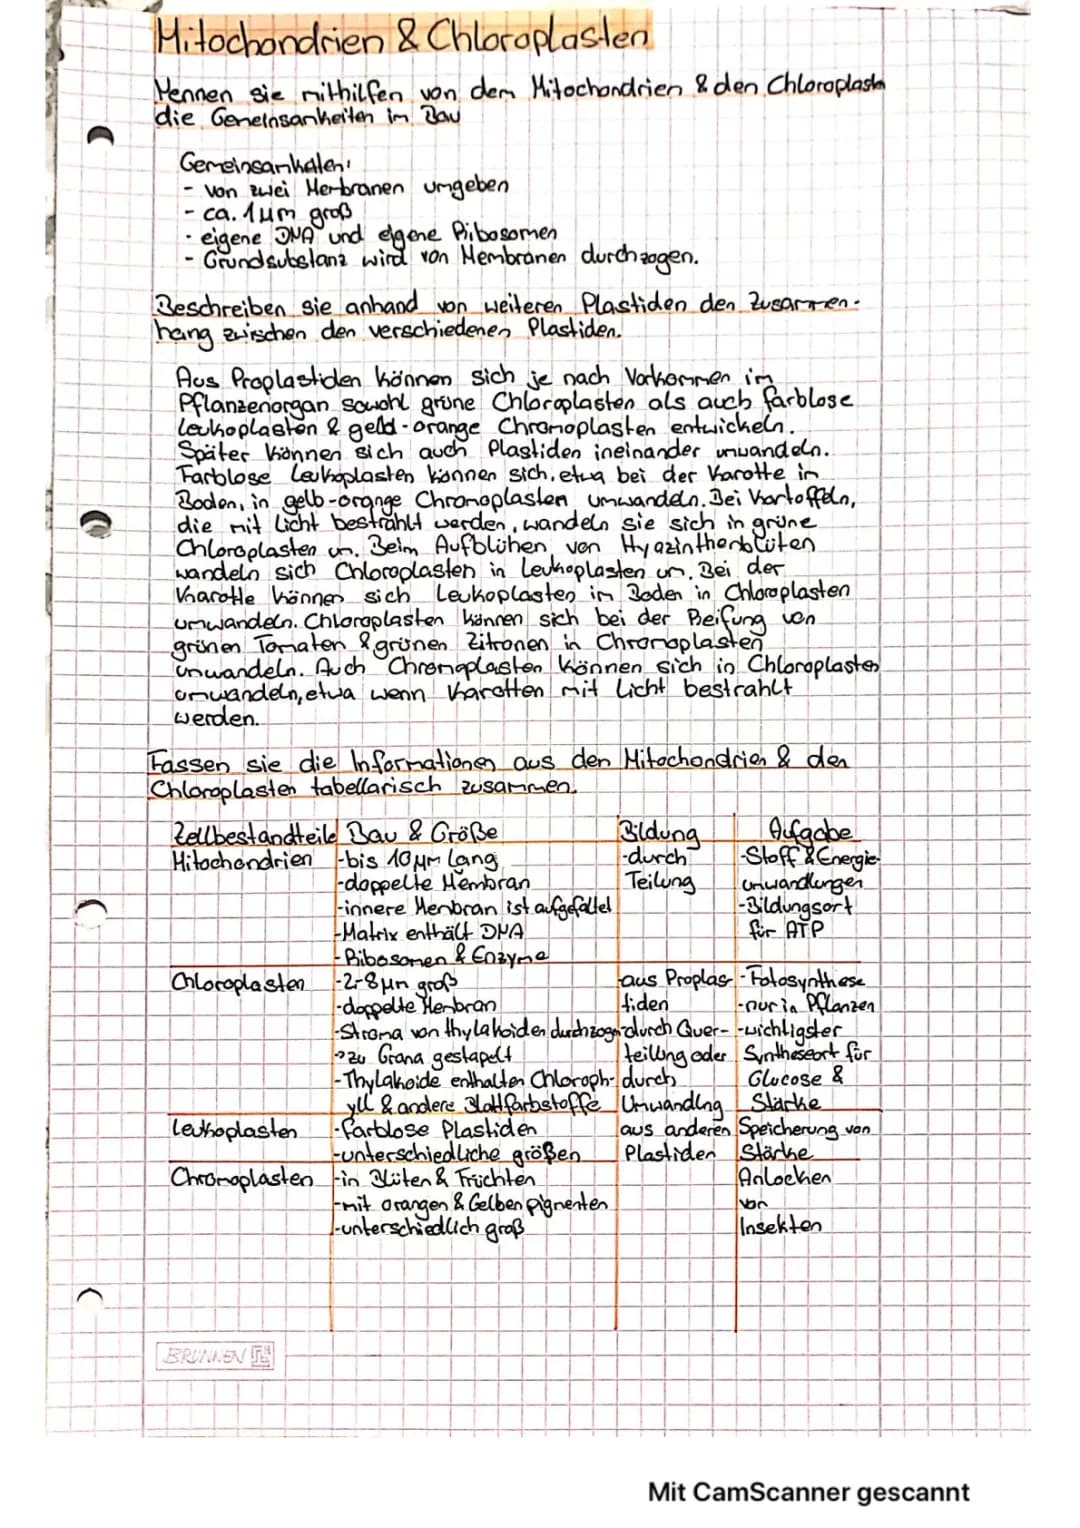 Mitochondrien & Chloroplasten
Nennen sie mithilfen von dem Mitochondrien & den Chloroplasten
die Gemeinsamheiten im Bau
Gemeinsamheiten:
- von zwei Membranen umgeben
- ca. 1µm groß
- eigene DNA und eigene Ribosomen
- Grundsubstanz wird von Membranen durchzogen.
Beschreiben sie anhand von weiteren Plastiden den Zusammen-
hang zwischen den verschiedenen Plastiden.
Aus Proplastiden können sich je nach Vorkommen im
Pflanzenorgan sowohl grüne Chloroplasten als auch farblose
Leukoplasten & geld-orange Chromoplasten entwickeln.
Später können sich auch Plastiden ineinander umwandeln.
Farblose Leukoplasten können sich, etwa bei der Karotte im
Boden, in gelb-orange Chromoplasten umwandeln. Bei Kartoffeln,
die mit Licht bestrahlt werden, wandeln sie sich in grüne
Chloroplasten um. Beim Aufblühen von Hyazinthenblüten
wandeln sich Chloroplasten in Leukoplasten um. Bei der
Karotte können sich Leukoplasten im Boden in Chloroplasten
umwandeln. Chloroplasten können sich bei der Reifung von
grünen Tomaten & grünen Zitronen in Chromoplasten
umwandeln. Auch Chromoplasten können sich in Chloroplasten
umwandeln, etwa wenn Karotten mit Licht bestrahlt
werden.
Fassen sie die Informationen aus den Mitochondrien & den
Chloroplasten tabellarisch zusammen.
Zellbestandteile Bau & Größe Bildung Aufgabe
Mitochondrien -bis 10µm lang -durch -Stoff & Energie-
-doppelte Membran Teilung umwandlungen
-innere Membran ist aufgefaltet -Bildungsort
-Matrix enthält DNA für ATP
-Ribosomen & Enzyme
Chloroplasten -2-8µm groß aus Proplas- -Fotosynthese
-doppelte Membran tiden -nur in Pflanzen
-Stroma von thylakoiden durchzogen durch Quer- -wichtigster
→zu Grana gestapelt teilung oder Syntheseort für
-Thylakoide enthalten Chloroph- durch Glucose &
yll & andere Blattfarbstoffe Umwandlng Stärke
Leukoplasten -farblose Plastiden aus anderen Speicherung von
-unterschiedliche größen Plastiden Stärke
Chromoplasten -in Blüten & Früchten Anlocken
-mit orangen & Gelben pigmenten von
-unterschiedlich groß Insekten
BRUNNEN
Mit CamScanner gescannt